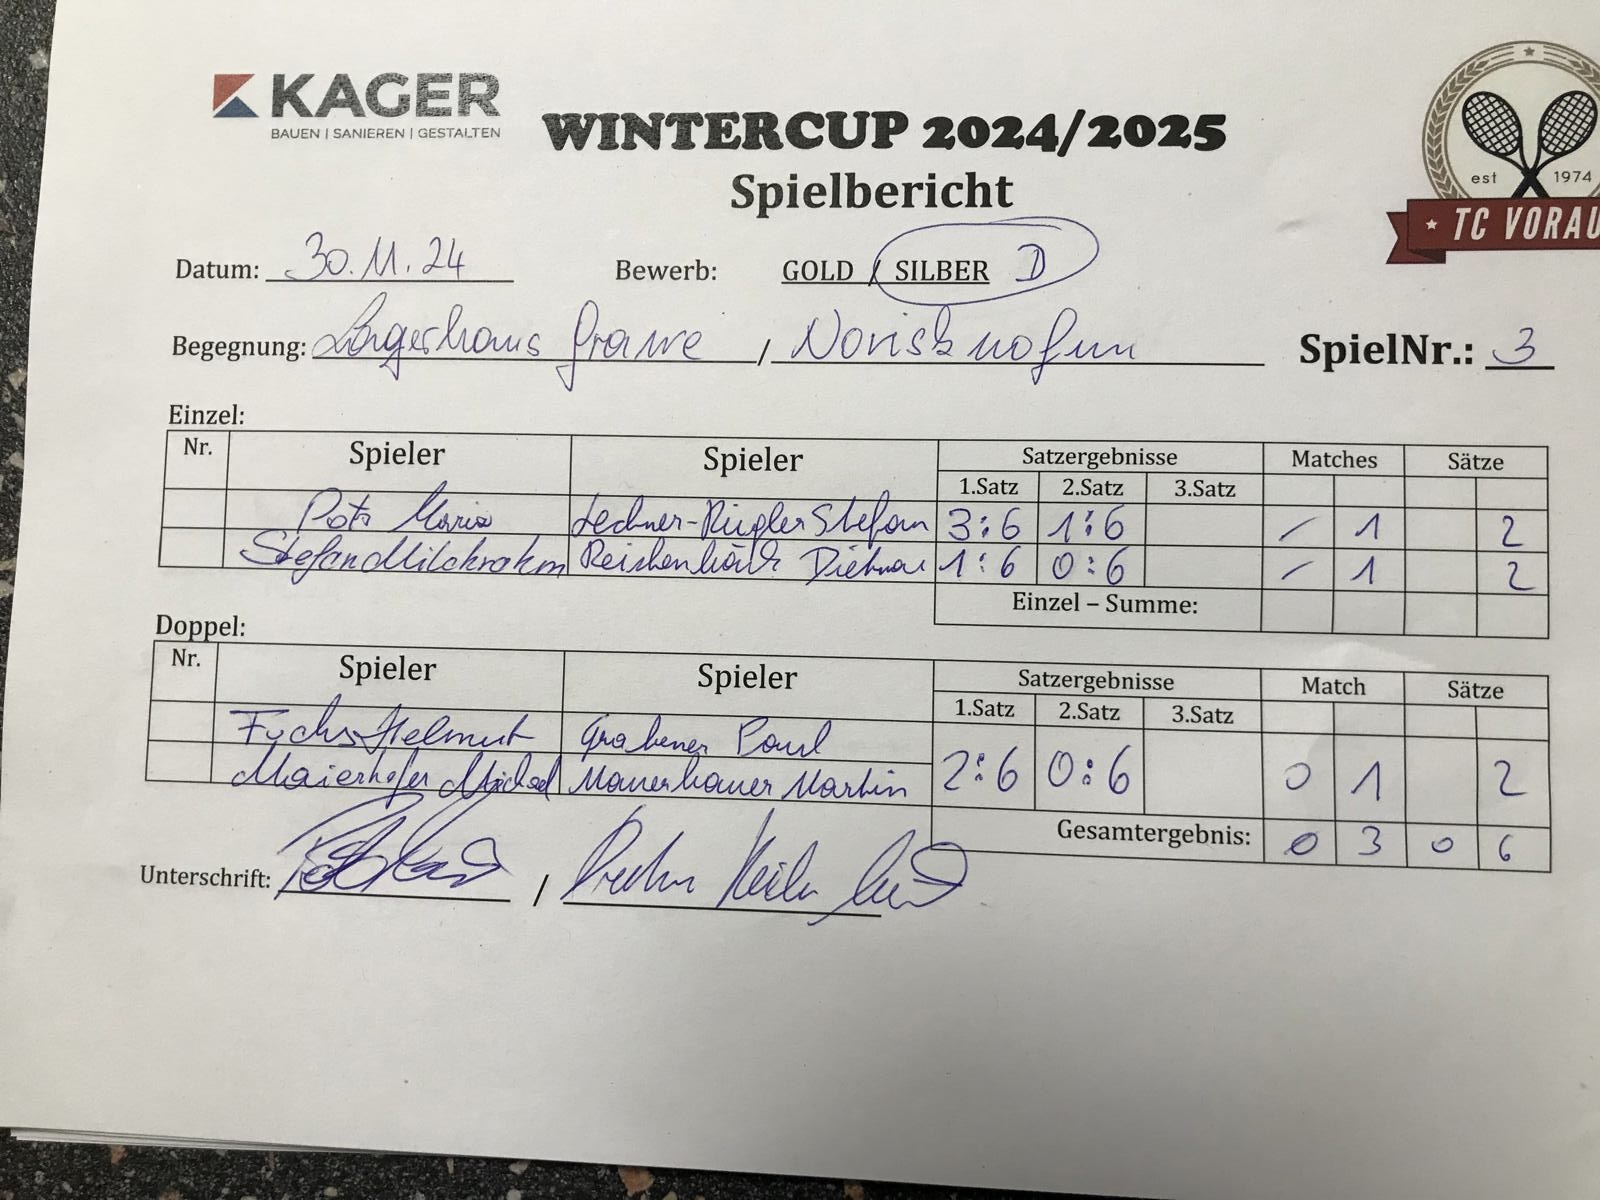 KAGER
BAUEN | SANIEREN | GESTALTEN
WINTERCUP 2024/2025
Spielbericht
est 1974
★ TC VORAU
Datum: 30.11.24 Bewerb: GOLD / SILBER D
Begegnung: Lagerhaus / SpielNr.: 3
Einzel:
Nr. Spieler Spieler Satzergebnisse Matches Sätze
1.Satz 2.Satz 3.Satz
Lechner-Riegler Stefan 3:6 1:6 - 1 2
Stefan Milchrahm Dietmar 1:6 0:6 - 1 2
Einzel – Summe:
Doppel:
Nr. Spieler Spieler Satzergebnisse Match Sätze
1.Satz 2.Satz 3.Satz
Fuchs Helmut Grabener Paul
Maierhofer Michael Mauerbauer Martin 2:6 0:6 0 1 2
Gesamtergebnis: 0 3 0 6
Unterschrift: /